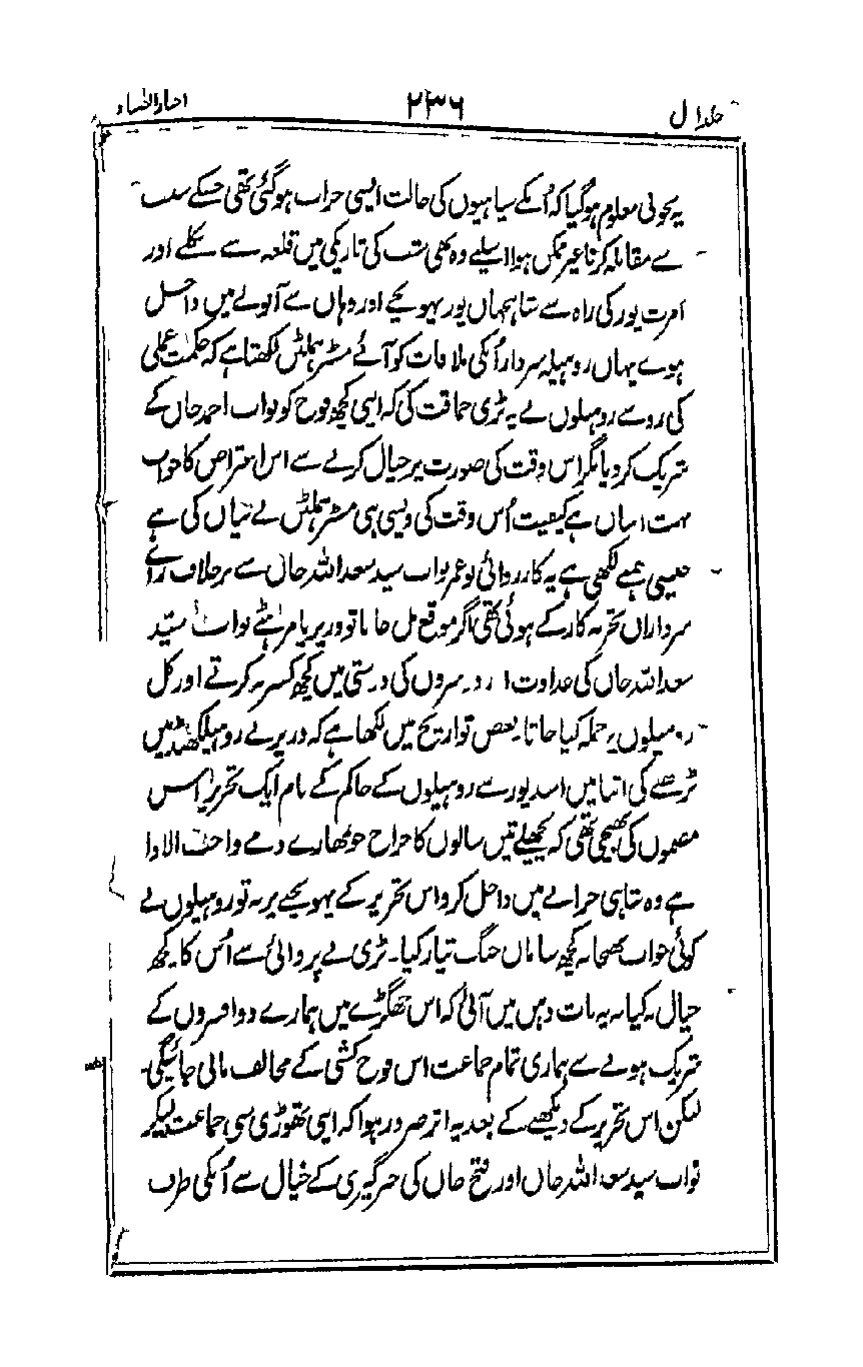 جلد اول ۲۳۶ اخبار الصنادید
یہ بخوبی معلوم ہوگیا کہ اُنکے سپاہیوں کی حالت ایسی خراب ہوگئی تھی جسکے سبب
سے مقابلہ کرنا غیر ممکن ہوا اسلیے وہ بھی شب کی تاریکی میں قلعہ سے نکلے اور
امرت پور کی راہ سے شاہجہاں پور پہونچے اور وہاں سے آنولے میں داخل
ہوے یہاں روہیلہ سردار اُنکی ملاقات کو آئے مسٹر ہملٹن لکھتا ہے کہ حکمت عملی
کی رو سے روہیلوں نے یہ بڑی حماقت کی کہ اپنی کچھ فوج کو نواب احمد خاں کے
شریک کردیا مگر اس وقت کی صورت پر خیال کرنے سے اس اعتراض کا جواب
بہت آسان ہے کیفیت اُس وقت کی ویسی ہی مسٹر ہملٹن نے بیان کی ہے
جیسی ہمنے لکھی ہے یہ کارروائی نوعمر نواب سید سعد اللہ خاں سے برخلاف رائے
سرداران تجربہ کار کے ہوئی تھی اگر موقع مل جاتا تو وزیر یا مرہٹے نواب سیّد
سعد اللہ خاں کی عداوت اور دوسروں کی درستی میں کچھ کسر نہ کرتے اور کل
روہیلوں پر حملہ کیا جاتا بعض تواریخ میں لکھا ہے کہ وزیر نے روہیلکھنڈ میں
بڑھنے کی اثنا میں اسد پور سے روہیلوں کے حاکم کے نام ایک تحریر اس
مضموں کی بھیجی تھی کہ پچھلے تین سالوں کا خراج جو تمھارے ذمے واجب الادا
ہے وہ شاہی خزانے میں داخل کرو اس تحریر کے پہونچنے پر نہ تو روہیلوں نے
کوئی جواب بھیجا نہ کچھ سامان جنگ تیار کیا۔ بڑی بے پروائی سے اُس کا کچھ
خیال نہ کیا۔ یہ بات ذہن میں آئی کہ اس جھگڑے میں ہمارے دو افسروں کے
شریک ہونے سے ہماری تمام جماعت اس فوج کشی کے مخالف مانی جائیگی۔
لیکن اس تحریر کے دیکھنے کے بعد یہ اثر ضرور ہوا کہ اپنی تھوڑی سی جماعت لیکر
نواب سید سعد اللہ خاں اور فتح خاں کی خبرگیری کے خیال سے اُنکی طرف